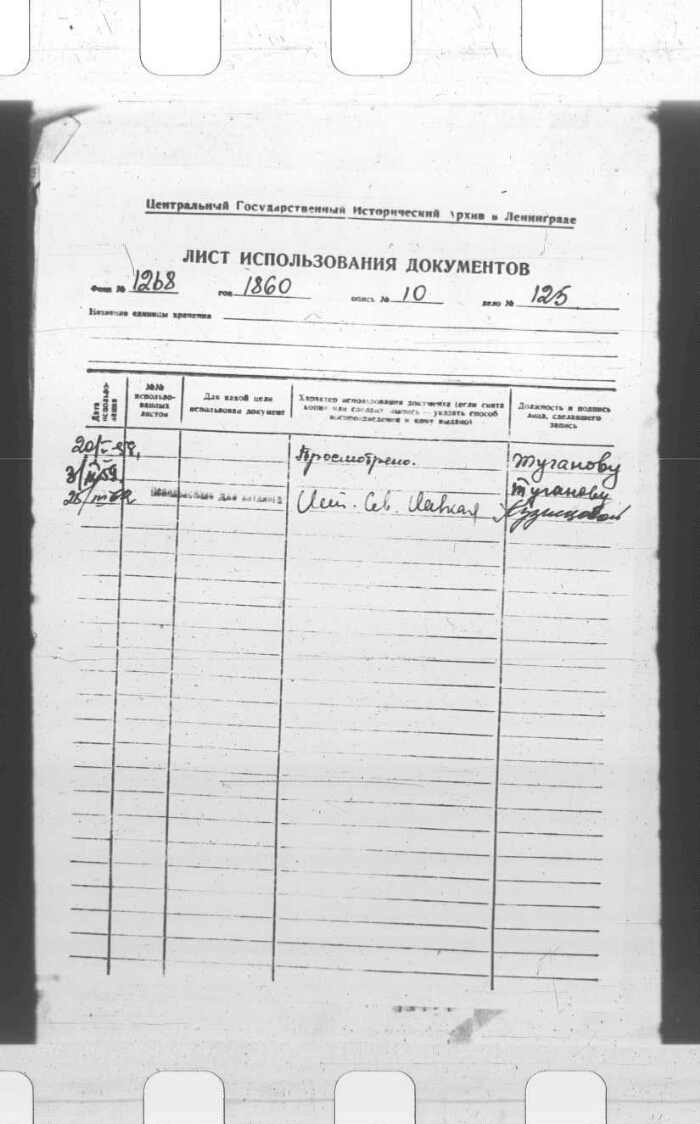 Центральный Государственный Исторический Архив в Ленинграде
ЛИСТ ИСПОЛЬЗОВАНИЯ ДОКУМЕНТОВ
Фонд № 1268 год 1860 опись № 10 дело № 125
Название единицы хранения
Дата использо-
вания
№№
использо-
ванных
листов
Для какой цели
использован документ
Характер использования документа (если снята
копия или сделана выпись – указать способ
воспроизведения и кому выдано)
Должность и подпись
лица, сделавшего
запись
Просмотрено. Туганову
Туганову